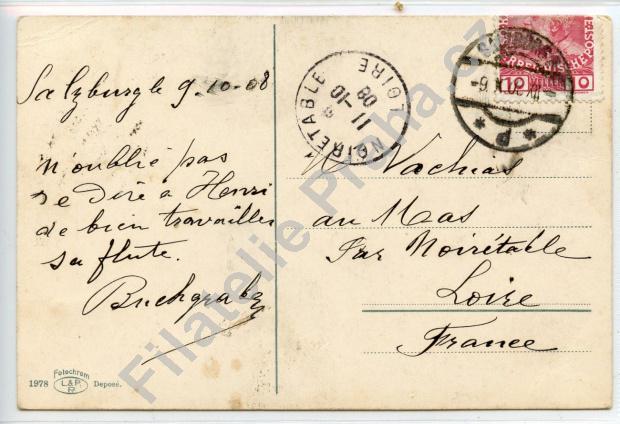 Salzburg le 9-10-08
N'oublié pas
de dire à Henri
de bien travailler
sa flute.
Buchgraber
M Vachias
au Mas
Par Noirétable
Loire
France
NOIRETABLE
LOIRE
11-10
08
-9.X.08
* P *
10 HELLER 10
Fotochrom
1978 L&P. Deposé.
Filatelie Praha.cz